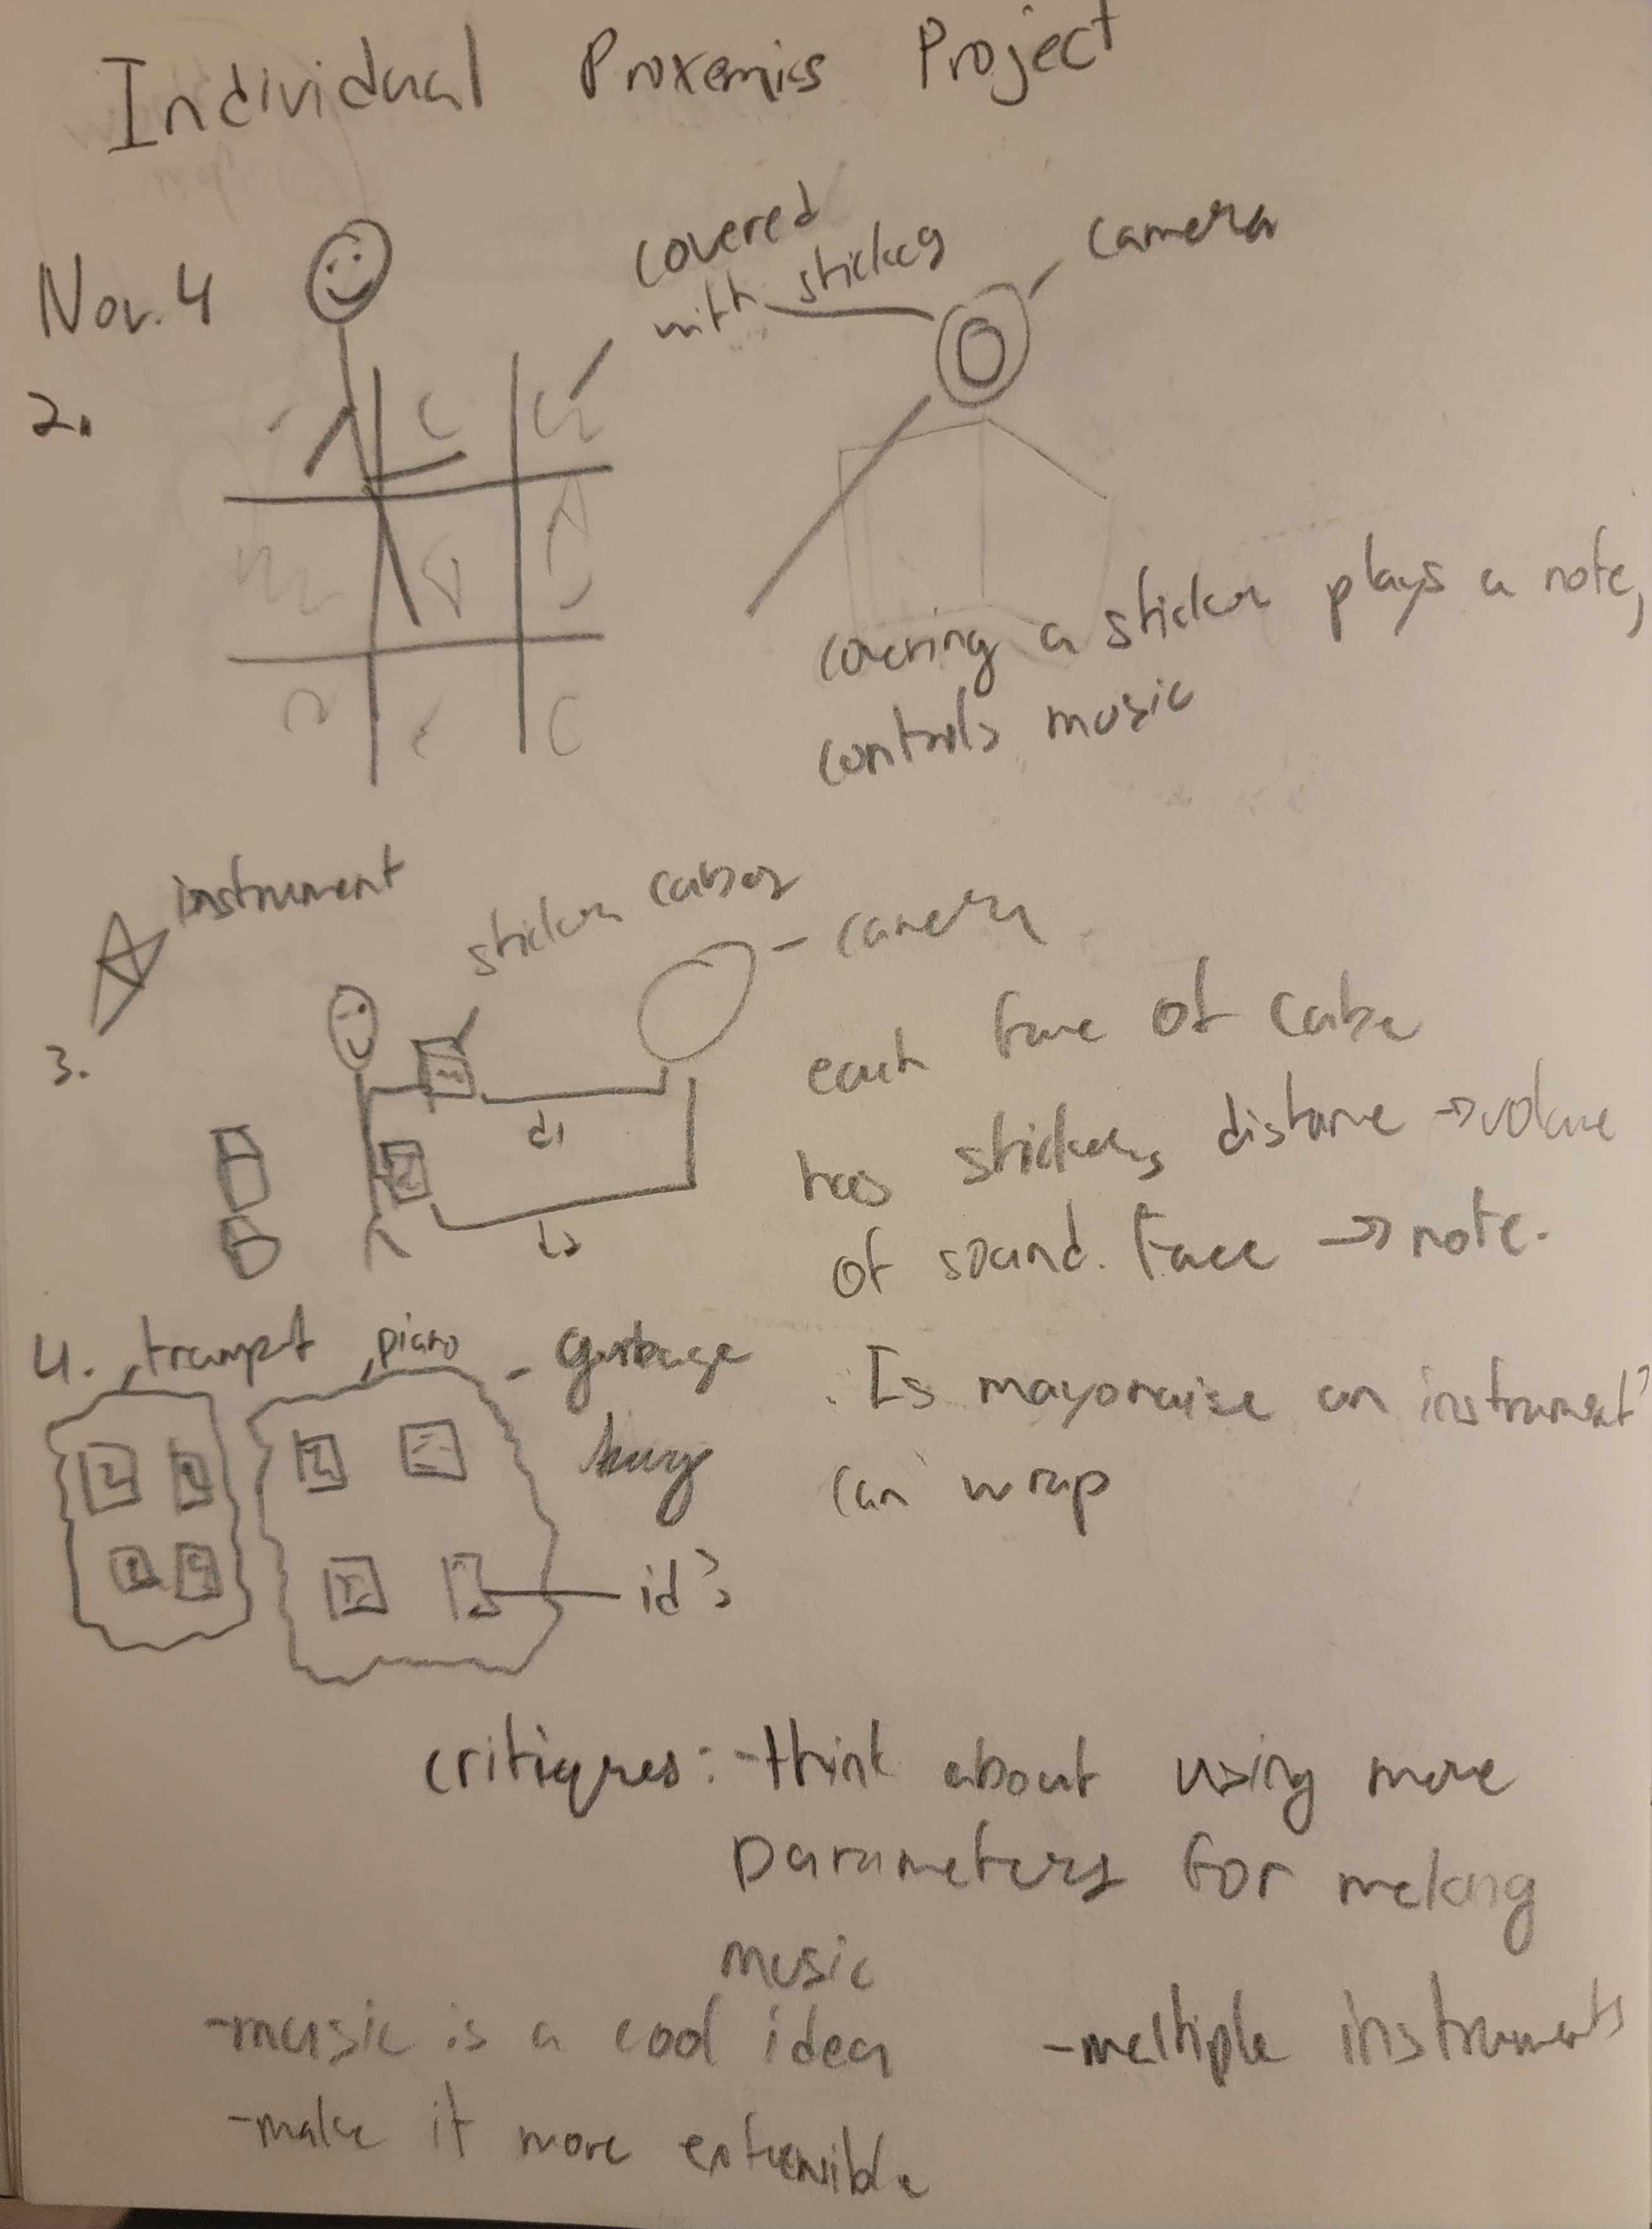 Individual Proxemics Project
Nov. 4
covered
with stickers
camera
2.
covering a sticker plays a note,
controls music
instrument
sticker cubes
camera
3.
each face of cube
has stickers, distance → volume
of sound. Face → note.
d1
4. trumpet piano - garbage
bag
. Is mayonaise an instrument?
can wrap
id's
critiques: - think about using more
parameters for making
music
- music is a cool idea
- multiple instruments
- make it more extensible